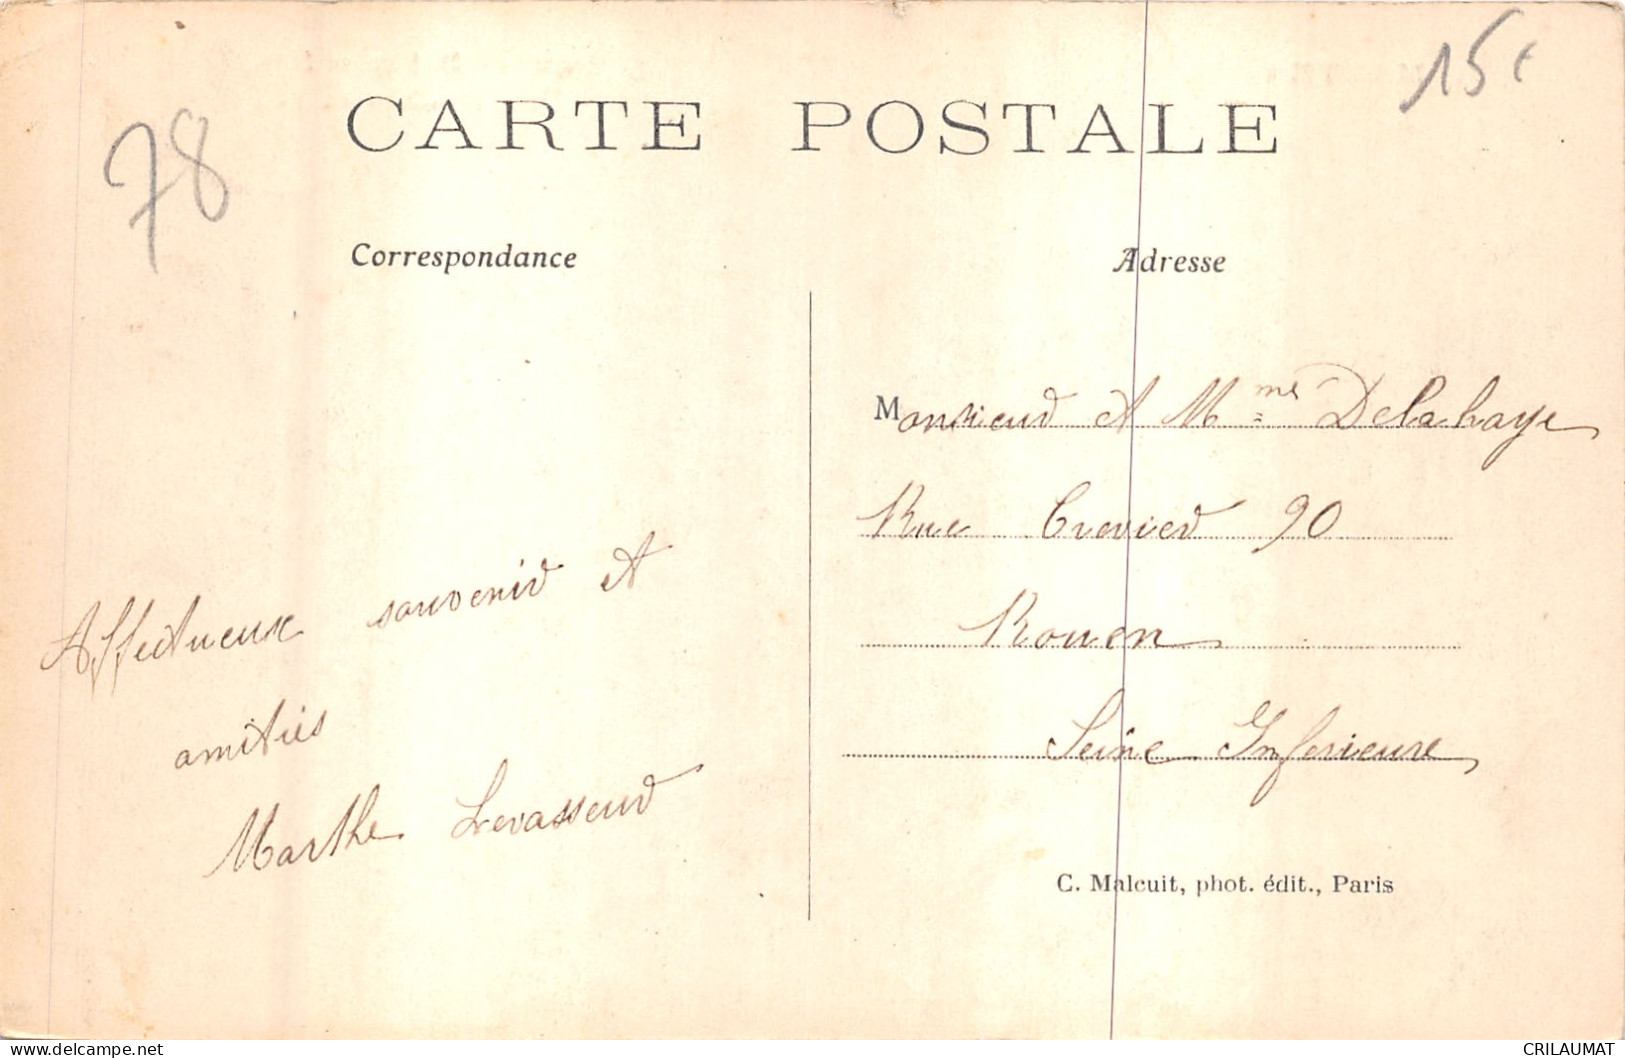 15€
78
CARTE POSTALE
Correspondance
Adresse
Monsieur et Mme Delahaye
Rue Crevier 90
Rouen
Seine Inferieure
Affectueux souvenir et
amitiés
Marthe Levasseur
C. Malcuit, phot. édit., Paris
www.delcampe.net
CRILAUMAT